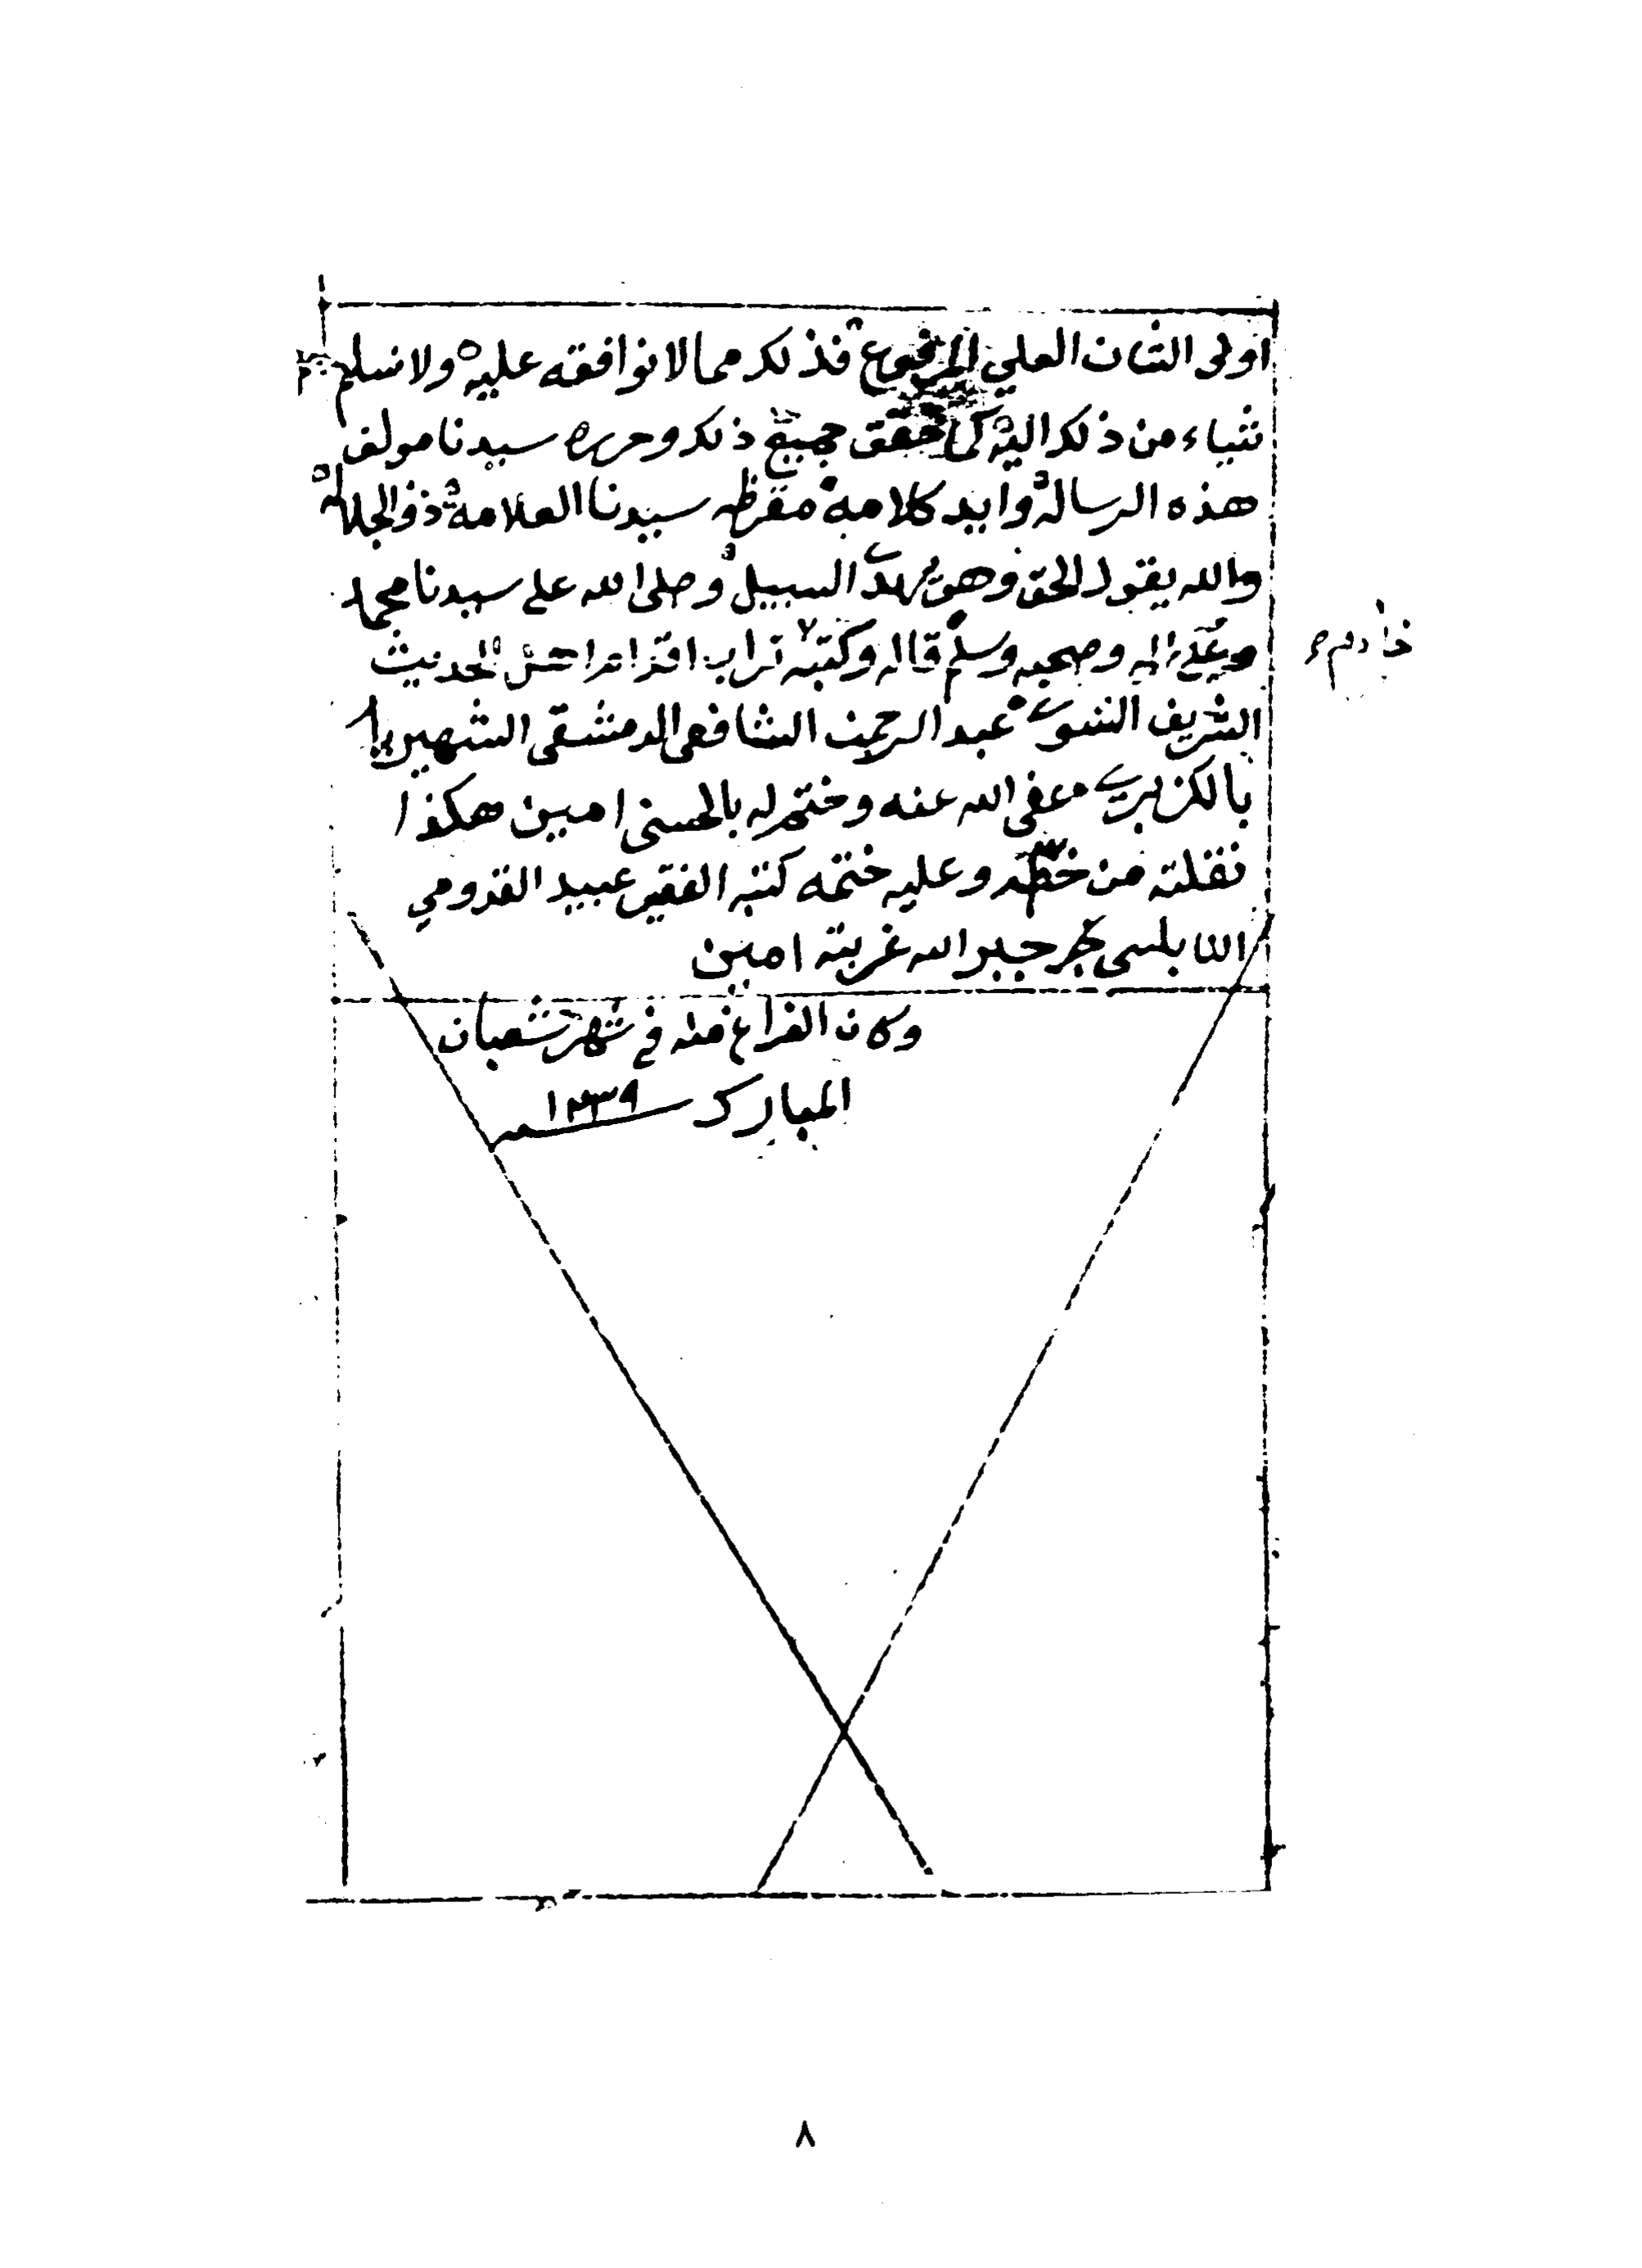 اولى الشان العلي المرفوع فذلك مما لا نوافقه عليه ولا نسلم
شياء من ذلك اليه كما حقق جميع ذلك وحرره سيدنا مولف
هذه الرسالة وايد كلامه مقرظه سيدنا العلامة ذو الجلاله
والله يقول الحق وهو يهدي السبيل وصلى الله على سيدنا محمد
وعلى اله وصحبه وسلم قاله وكتبه تراب اقدام الحديث
خادم
الشريف النبوي عبد الرحمن الشافعي الدمشقي الشهير
بالكزبري عفى الله عنه وختم له بالحسنى امين هكذا
نقلته من خطه وعليه ختمه كتبه الفقير عبيد القدومي
النابلسي جبر الله غربته امين
وكان الفراغ منه في شهر شعبان
المبارك ١٢٣٩
٨